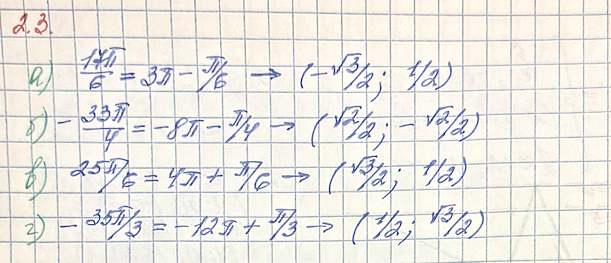 2.3.
а) 17π/6 = 3π - π/6 → (-√3/2; 1/2)
б) - 33π/4 = -8π - π/4 → (√2/2; -√2/2)
в) 25π/6 = 4π + π/6 → (√3/2; 1/2)
г) - 35π/3 = -12π + π/3 → (1/2; √3/2)